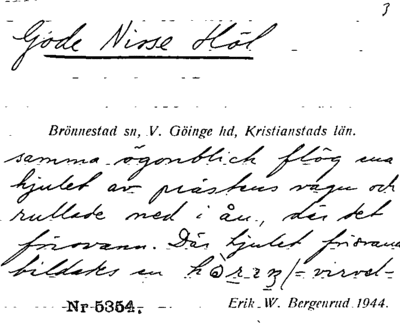 3
Göde Nisse Höl
Brönnestad sn, V. Göinge hd, Kristianstads län.
samma ögonblick flög ena
hjulet av prästens vagn och
rullade ned i ån, där det
försvann. Där hjulet försvann
bildades en virvel-
Nr 5354. Erik W. Bergenrud 1944.